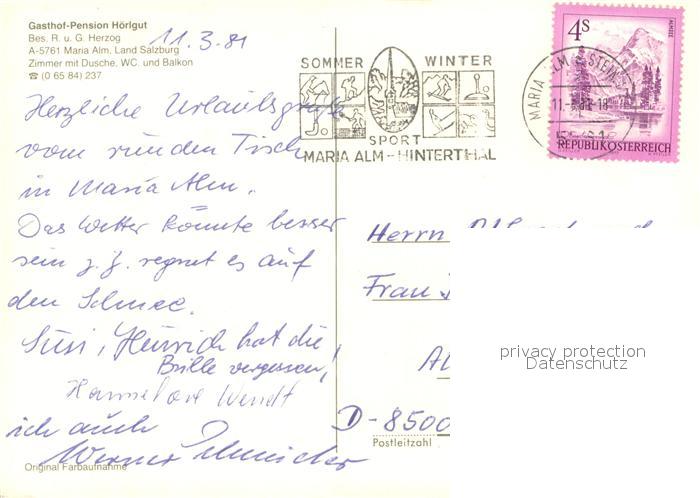 Gasthof-Pension Hörlgut
Bes. R. u. G. Herzog
A-5761 Maria Alm, Land Salzburg
Zimmer mit Dusche, WC. und Balkon
☎ (0 65 84) 237
11.3.81
Herzliche Urlaubsgrüße
vom runden Tisch
in Maria Alm.
Das Wetter könnte besser
sein z.Z. regnet es auf
den Schnee.
Susi, Heinrich hat die
Brille vergessen!
Hannelore Wendt
ich auch
Werner
Original Farbaufnahme
SOMMER WINTER
SPORT
MARIA ALM - HINTERTHAL
4S
ALMSEE
MARIA ALM
REPUBLIK ÖSTERREICH
Herrn
Frau
D-8500
Postleitzahl
privacy protection
Datenschutz